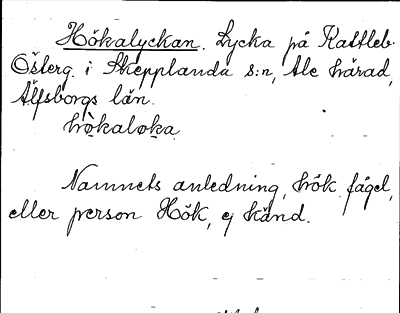 Hökalyckan. Lycka på Kattleb.
Österg. i Skepplanda s:n, Ale härad,
Älfsborgs län.
hö̀kaloka
Namnets anledning, hök fågel,
eller person Hök, ej känd.